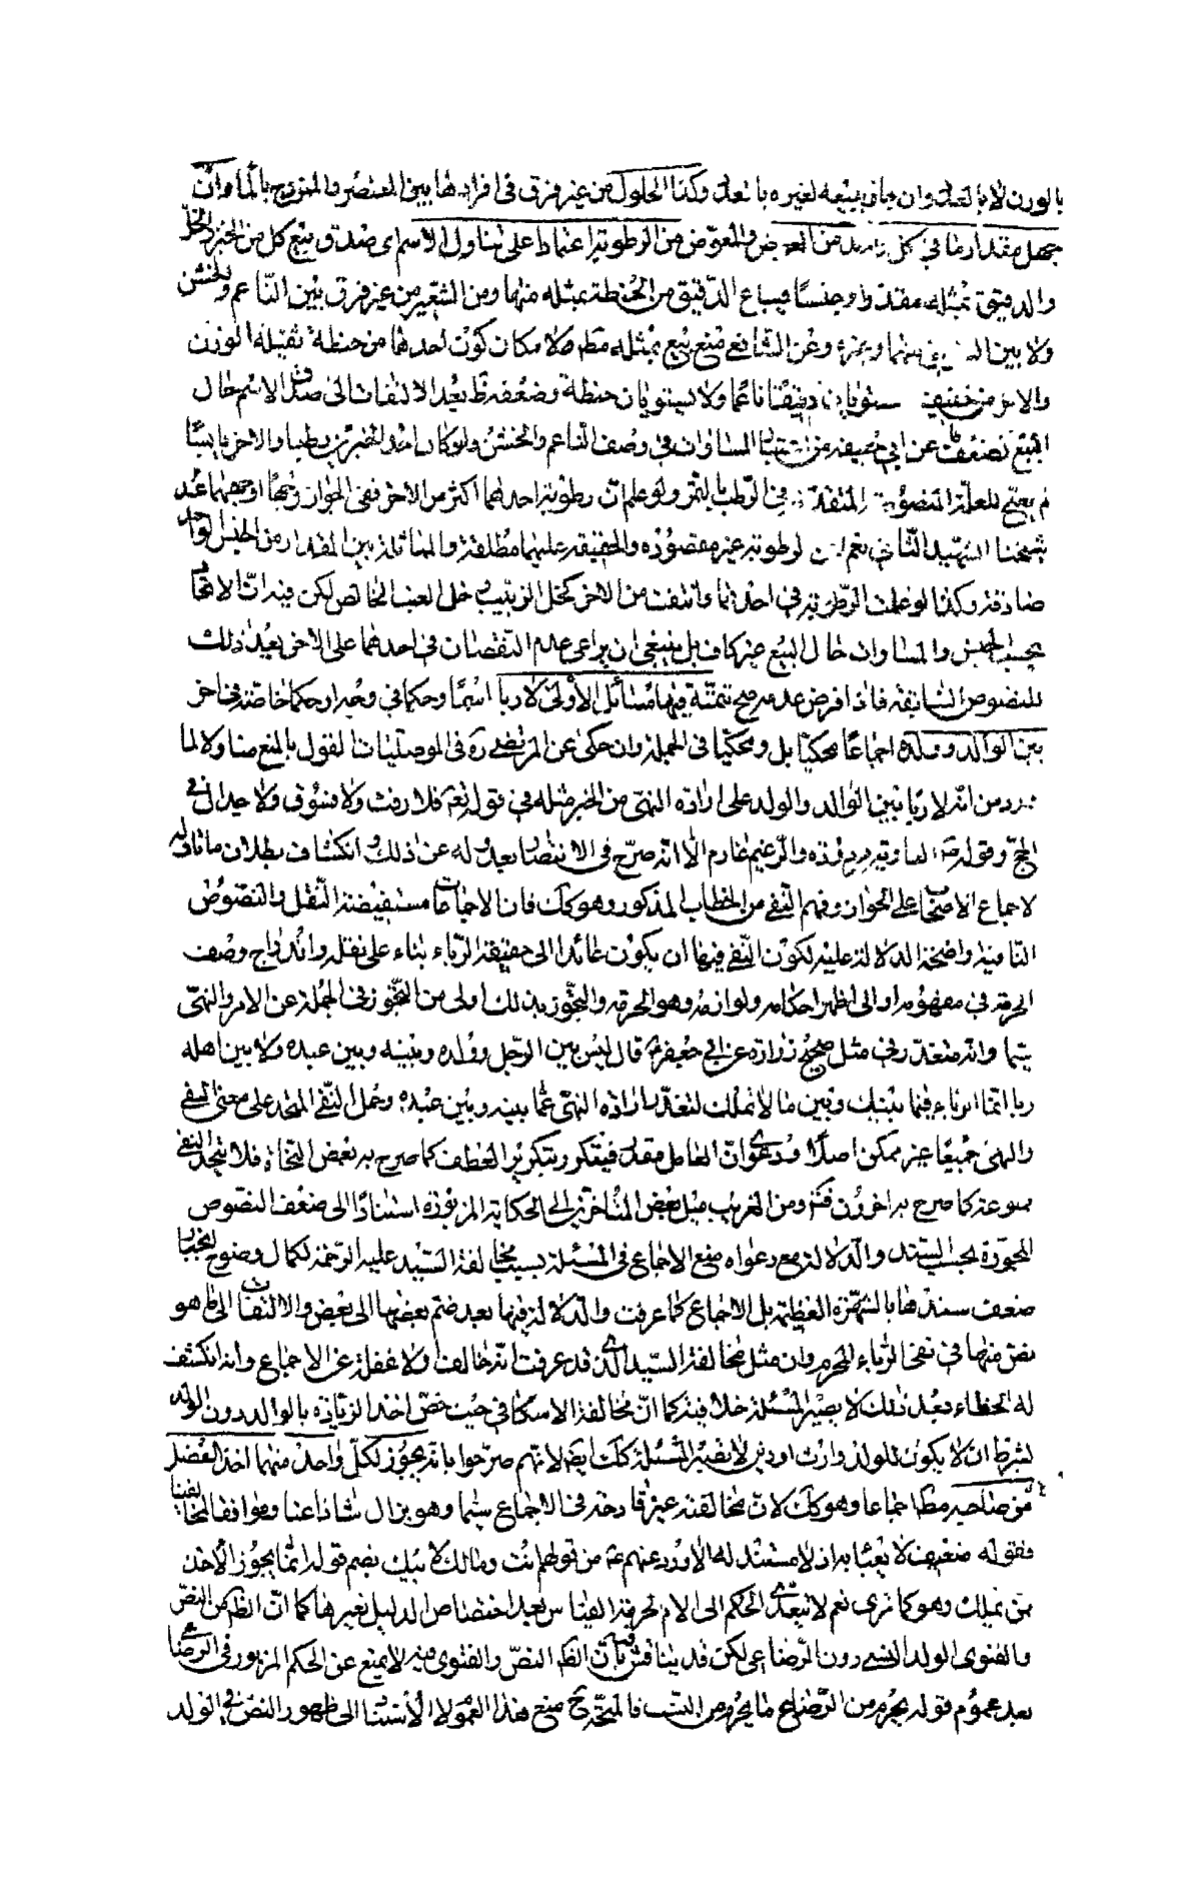 بالوزن لا بالعد وان جاز بيعه لغيره بالعد وكذا الحلول من غير فرق فى افرادها بين المعتصر والممزوج بالماء وان
جهل مقدار ما في كل من العوض والمعوض من الرطوبة اعتمادا على تناول الاسم اى صدق وبيع كل من الخبز والخل
والدقيق بمثله مقدارا وجنسا فيباع الدقيق من الحنطة بمثله منها ومن الشعير من غير فرق بين الناعم والخشن
ولا بين وغيره وعن الشافعى منع بيع بمثله مط لامكان كون احدهما من حنطة ثقيلة الوزن
والاخر من خفيفة دقيقا ناعما ولا يستويان حنطة وضعفه ظ بعد الالتفات الى صدق الاسم حال
البيع عن ابى حنيفه من المساوات فى وصف الناعم والخشن ولو كان احد الخبزين رطبا والاخر يابسا
لم يصح للعلة المنصوصة المتقدمة فى الرطب بالتمر ولو علم ان رطوبة احدهما اكثر من الاخر ففى الجواز وجها اوجههما عند
شيخنا الشهيد الثانى نعم لان الرطوبة غير مقصودة والحقيقة عليهما مطلقة والمماثلة بين المقدار من الجنس الواحد
صادقة وكذا لو علمت الرطوبة فى احدهما وانتفت من الاخر كخل الزبيب وخل العنب الخالص لكن فيه ان الاتحاد
بحسب الجنس والمساوات حال البيع غير كاف بل ينبغى ان يراعى عدم النقصان فى احدهما على الاخر بعد ذلك
للنصوص السابقة فاذا فرض عدمه صح تتمة فيها مسائل الأولى لا ربا اسما وحكما في وجه او حكما خاصة فى اخر
بين الوالد وولده اجماعا محكيا بل ومحكيا فى الجملة وان حكى عن المرتضى ره فى الموصليات القول بالمنع صا ولا لما
ورد من انه لا ربا بين الوالد والولد على ارادة النهى من الخبر مثله فى قوله تع فلا رفث ولا فسوق ولا جدال فى
الحج وقوله العارية مردودة والزعيم غارم الا انه صرح فى الانتصار بعدوله عن ذلك وانكشاف بطلان ما تاوله
لاجماع الاصحاب على الجواز وفهم النفى من الخطاب المذكور وهو كك فان الاجماعات مستفيضة النقل والنصوص
النافية واضحة الدلالة عليه لكون النفى فيها ان يكون عائدا الى حقيقة الرباء بناء على نقله واندراج وصف
الحرمة فى مفهومه او الى اظهر احكامه ولوازمه وهو الحرمة والتجوز بذلك اولى من التجوز فى الجملة عن الامر والنهى
سيما وانه متعذر فى مثل صحيح زرارة عن ابى جعفر ع قال ليس بين الرجل وولده وبينه وبين عبده ولا بين اهله
ربا انما الرباء فيما بينك وبين ما لا تملك لتعذر ارادة النهى عما بينه وبين عبده وحمل النفى المتحد على معنى النفى
والنهى جميعا غير ممكن اصلا ودعوى ان العامل مقدر فيتكرر بتكرير العطف كما صرح به بعض النحاة فلا يتحد النفى
ممنوعة كما صرح به اخرون فتم ومن الغريب ميل بعض المتأخرين الى الحكاية المزبورة استنادا الى ضعف النصوص
المجوزة بحسب السند والدلالة مع دعواه منع الاجماع فى المسئلة بسبب مخالفة السيد عليه الرحمة لكمال وضوح انجبار
ضعف سندها بالشهرة العظيمة بل الاجماع كما عرفت والدلالة فيها بعد ضم بعضها الى بعض والالتفات الى ما هو
نص منها فى نفى الرباء المحرم وان مثل مخالفة السيد الذى قد عرفت انه خالف ولا غفلة عن الاجماع وانه انكشف
له الخطاء بعد ذلك لا يصير المسئلة خلافية كما ان مخالفة الاسكافى حيث خص اخذ الزيادة بالوالد دون الولد
بشرط ان لا يكون للولد وارث او دين لا تصير المسئلة كك ايضا لانهم صرحوا بانه يجوز لكل واحد منهما اخذ الفضل
من صاحبه مط اجماعا وهو كك لان مخالفته غير قادحة فى الاجماع سيما وهو بزال شاذا عنا وموافقا لمخالفينا
فقوله ضعيف لا يعبأ به اذ لا مستند له الا ورد عنهم ع من قولهم انت ومالك لابيك بضم قوله انما يجوز الاخذ
ممن يملك وهو كما ترى نعم لا يتعدى الحكم الى الام لحرمة القياس بعد اختصاص الدليل بغيرها كما ان الظ من النص
والفتوى الولد النسبى دون الرضاعى لكن قد يناقش فيه بان الظ النص والفتوى فيه لا يمنع عن الحكم المزبور فى الرضاعى
بعد عموم قوله يحرم من الرضاع ما يحرم من النسب فالمتجه ح منع هذا العموم لا الاستناد الى ظهور النص فى الولد